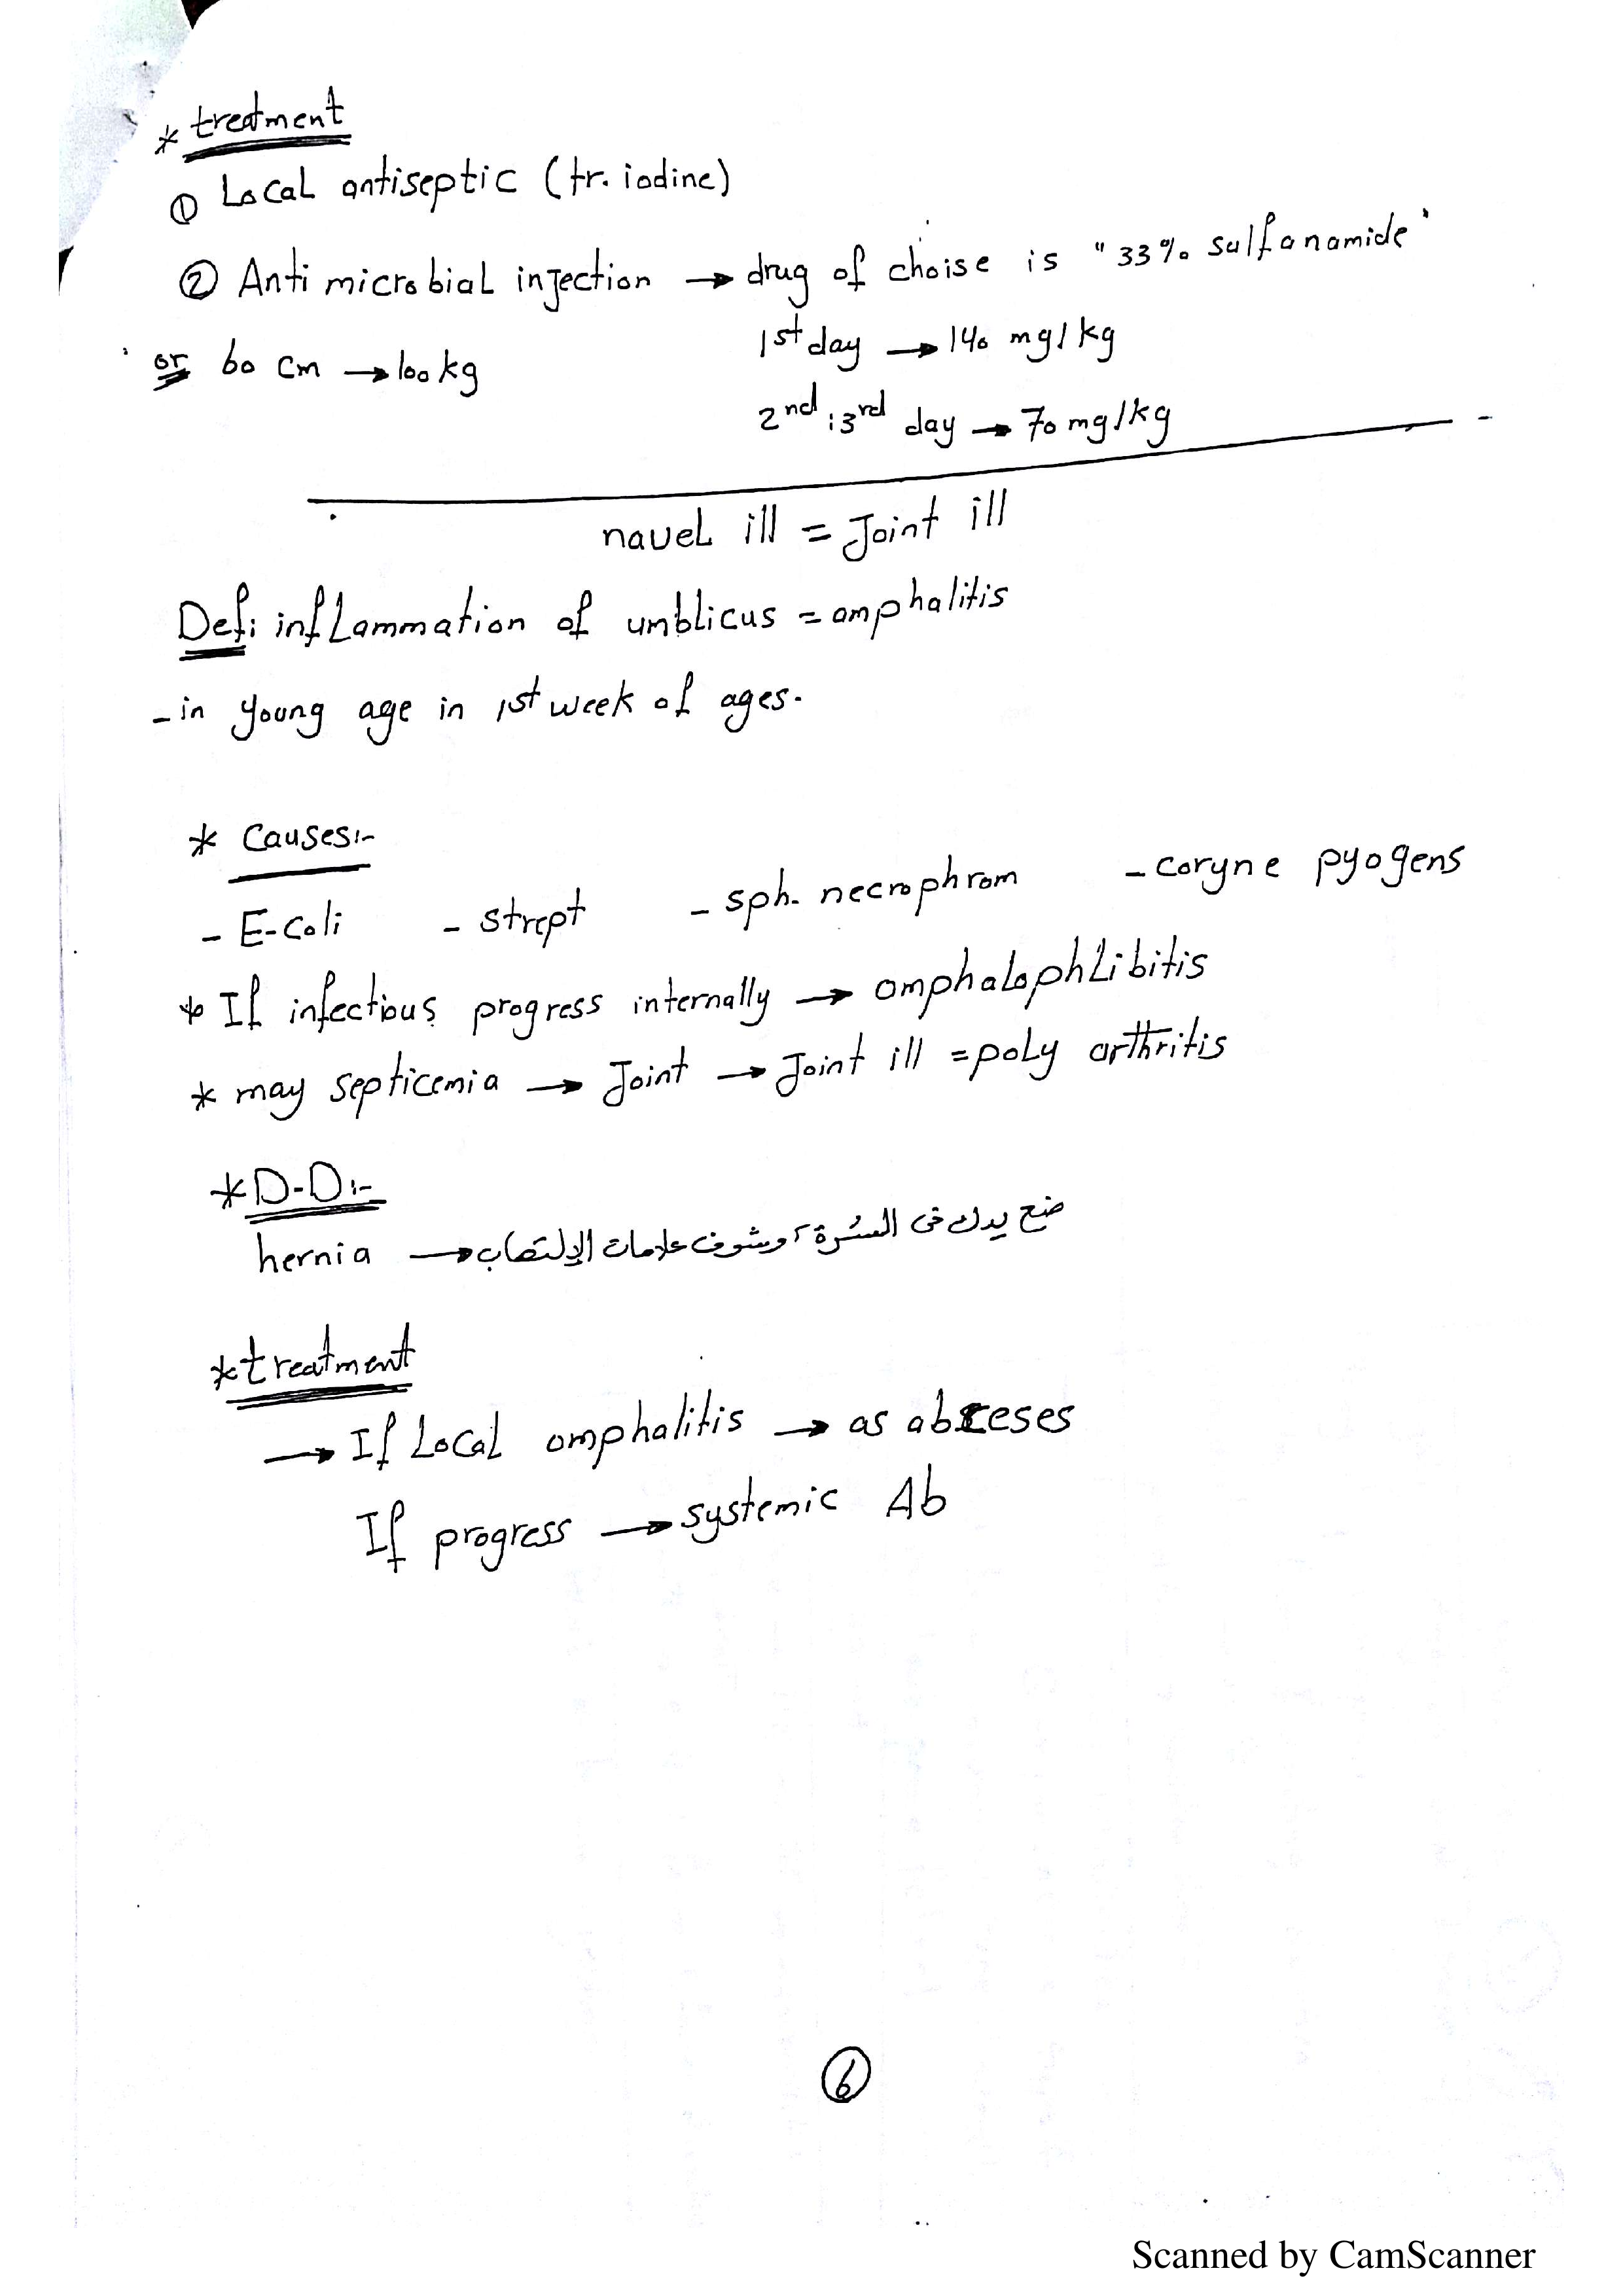 * treatment
① Local antiseptic (tr. iodine)
② Anti microbial injection → drug of choise is "33% sulfanamide"
1st day → 140 mg/kg
or 60 cm → 100 kg
2nd : 3rd day → 70 mg/kg
navel ill = Joint ill
Def: inflammation of umblicus = omphalitis
- in young age in 1st week of ages.
* Causes:-
- E-coli - strept - sph. necrophrom - coryne pyogens
* If infectious progress internally → omphalophlibitis
* may septicemia → Joint → Joint ill = poly arthritis
* D-D:-
hernia → ضع يدك فى السُرة وشوف علامات الإلتهاب
* treatment
→ If Local omphalitis → as absceses
If progress → systemic Ab
6
Scanned by CamScanner